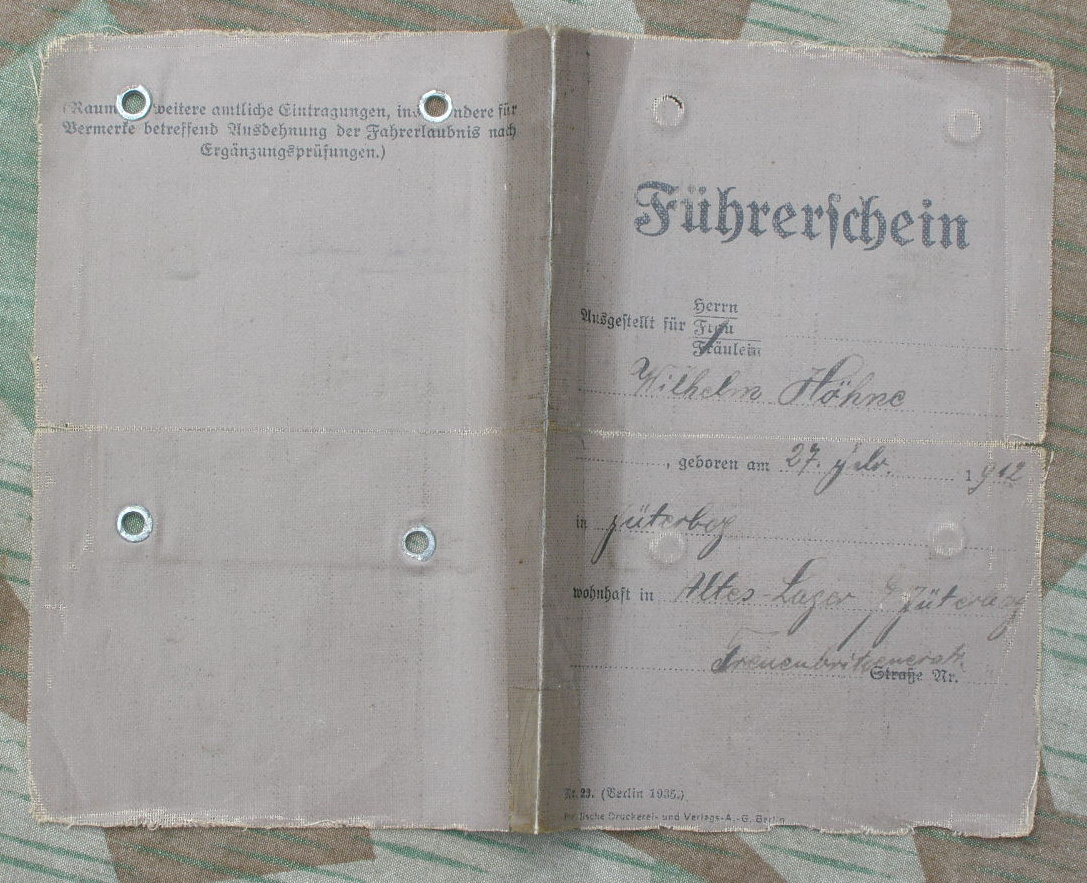 (Raum weitere amtliche Eintragungen, insbesondere für
Vermerke betreffend Ausdehnung der Fahrerlaubnis nach
Ergänzungsprüfungen.)
Führerschein
Herrn
Ausgestellt für Frau
Fräulein
Wilhelm Höhne
, geboren am 27. 1912
in Jüterbog
wohnhaft in Altes-Lager Jüterbog
Treuenbritzenerstr.
Straße Nr.
Nr. 23. (Berlin 1935.)
Druckerei- und Verlags-A.-G. Berlin